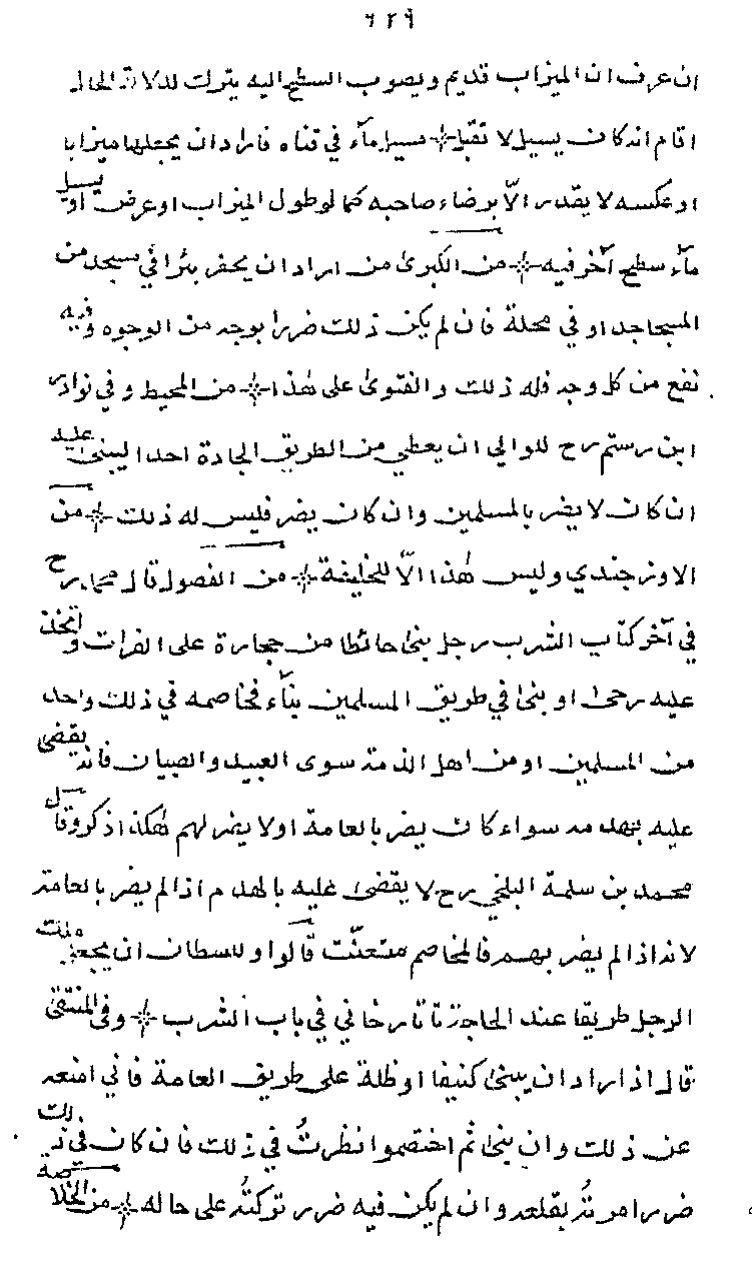 ٦٢٩
ان عرف ان الميزاب قديم ويصوب السطح اليه يترك لدلالة الحال
اقام انه كان يسيل لا تقبل مسيل ماء في قناه فاراد ان يجعلها ميزابا
او عكسه لا يقدر الّا برضاء صاحبه كما لو طول الميزاب او عرض او يسيل
ماء سطح آخر فيه من الكبرى من اراد ان يحفر بئرا في مسجد من
المساجد او في محلة فان لم يكن ذلك ضررا بوجه من الوجوه وفيه
نفع من كل وجه فله ذلك والفتوى على هذا من المحيط وفي نوادر
ابن رستم رح للوالي ان يعطي من الطريق الجادة احدا ليبنى عليه
ان كان لا يضر بالمسلمين وان كان يضر فليس له ذلك من
الاوزجندي وليس هذا الّا للخليفة من الفصول قال محمد رح
في آخر كتاب الشرب رجل بنى حائطا من حجارة على الفرات واتخذ
عليه رحى او بنى في طريق المسلمين بناء فخاصمه في ذلك واحد
من المسلمين او من اهل الذمة سوى العبيد والصبيان فانه يقضى
عليه بهدمه سواء كان يضر بالعامة او لا يضر لهم هكذا ذكر وقال
محمد بن سلمة البلخي رح لا يقضى عليه بالهدم اذا لم يضر بالعامة
لانه اذا لم يضر بهم فالمخاصم متعنّت قالوا وللسطان ان يجعل ملك
الرجل طريقا عند الحاجة تاتارخاني في باب الشرب وفى المنتقى
قال اذا اراد ان يبنى كنيفا او ظلة على طريق العامة فاني امنعه
عن ذلك وان بنى ثم اختصموا نظرتُ في ذلك فان كان في ذلك
ضرر امرتُه بقلعه وان لم يكن فيه ضرر تركتُه على حاله من الخلاصة